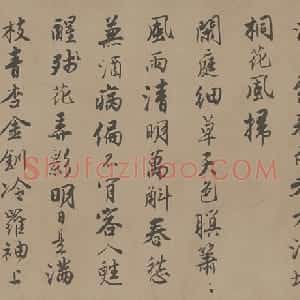 桐花風掃
閑庭細草天色暝蕭〻
風雨清明萬斛春愁
兼酒病偏不肯客人醒
醒殘花弄影明日是滿
枝青李金釧冷羅袖上
Shufaziliao.com